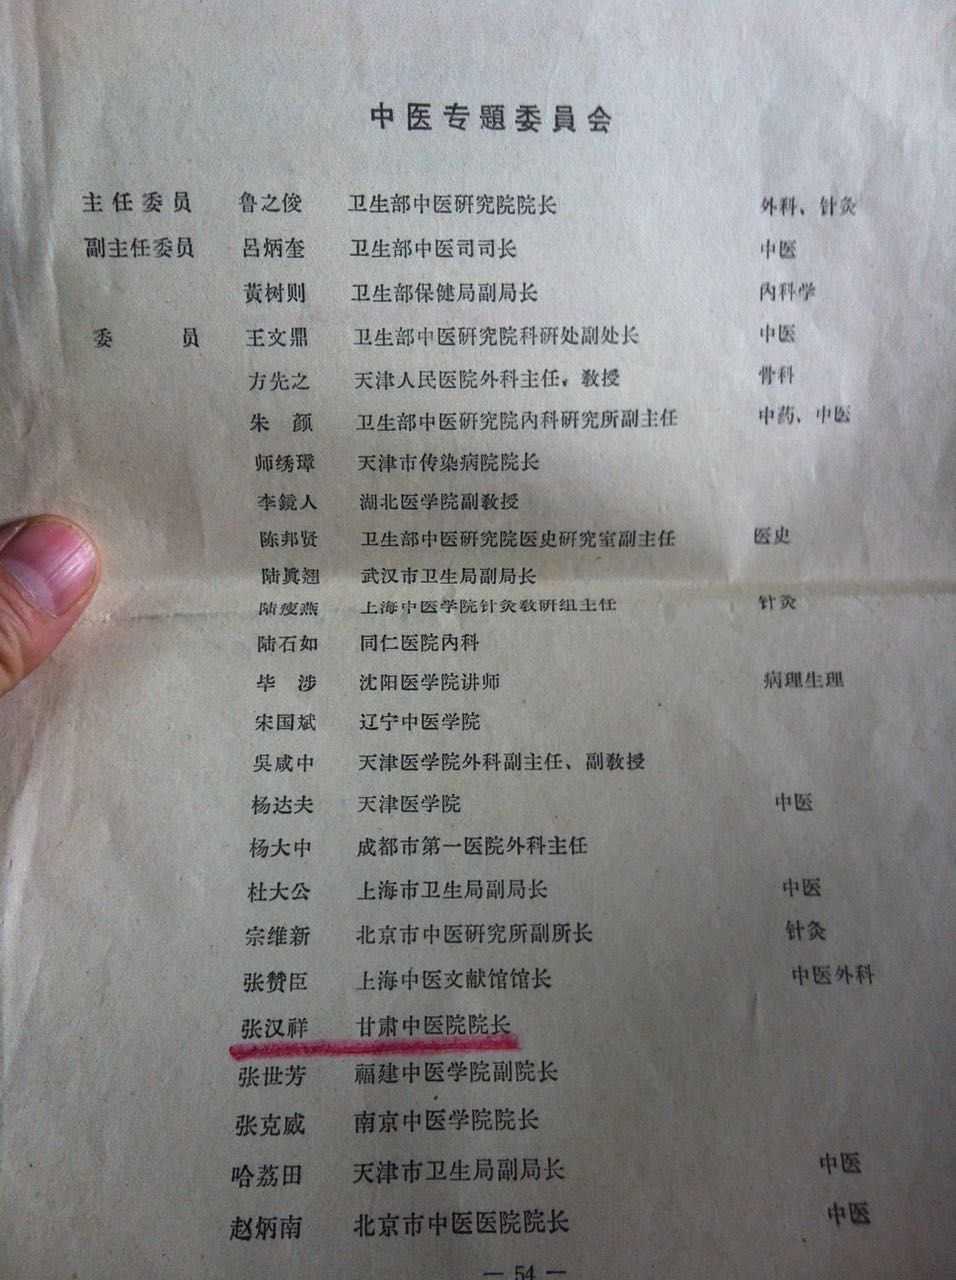 中医专題委員会
主任委員 鲁之俊 卫生部中医研究院院长 外科、针灸
副主任委員 呂炳奎 卫生部中医司司长 中医
黃树则 卫生部保健局副局长 內科学
委員 王文鼎 卫生部中医研究院科研处副处长 中医
方先之 天津人民医院外科主任、敎授 骨科
朱颜 卫生部中医研究院內科研究所副主任 中药、中医
师绣璋 天津市传染病院院长
李鏡人 湖北医学院副敎授
陈邦贤 卫生部中医研究院医史研究室副主任 医史
陆眞翘 武汉市卫生局副局长
陆瘦燕 上海中医学院针灸敎研組主任 针灸
陆石如 同仁医院內科
毕涉 沈阳医学院讲师 病理生理
宋国斌 辽宁中医学院
吳咸中 天津医学院外科副主任、副敎授
杨达夫 天津医学院 中医
杨大中 成都市第一医院外科主任
杜大公 上海市卫生局副局长 中医
宗维新 北京市中医研究所副所长 针灸
张赞臣 上海中医文献馆馆长 中医外科
张汉祥 甘肃中医院院长
张世芳 福建中医学院副院长
张克威 南京中医学院院长
哈荔田 天津市卫生局副局长 中医
赵炳南 北京市中医医院院长 中医
— 54 —